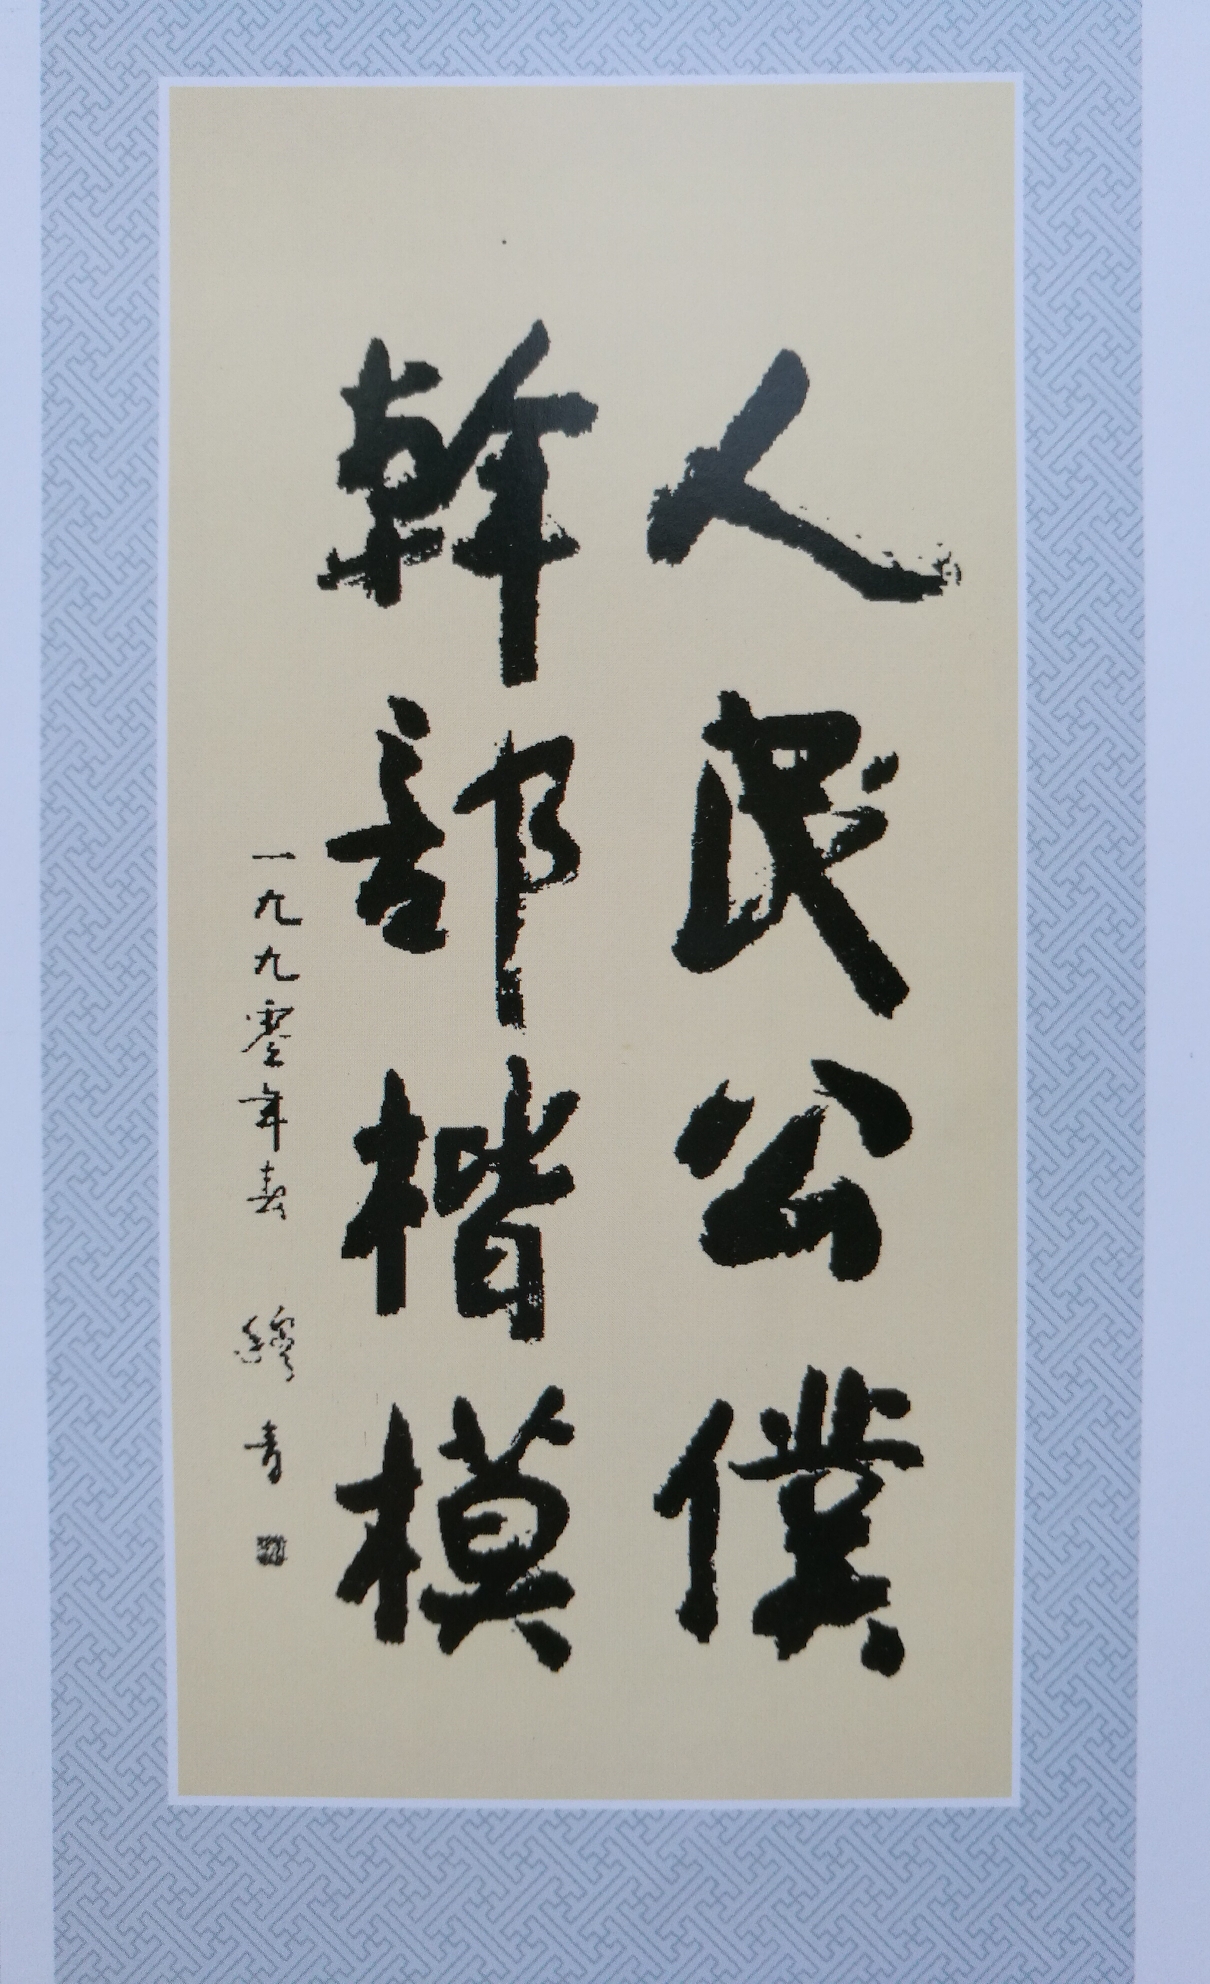 人民公僕
幹部楷模
一九九零年春 穆青